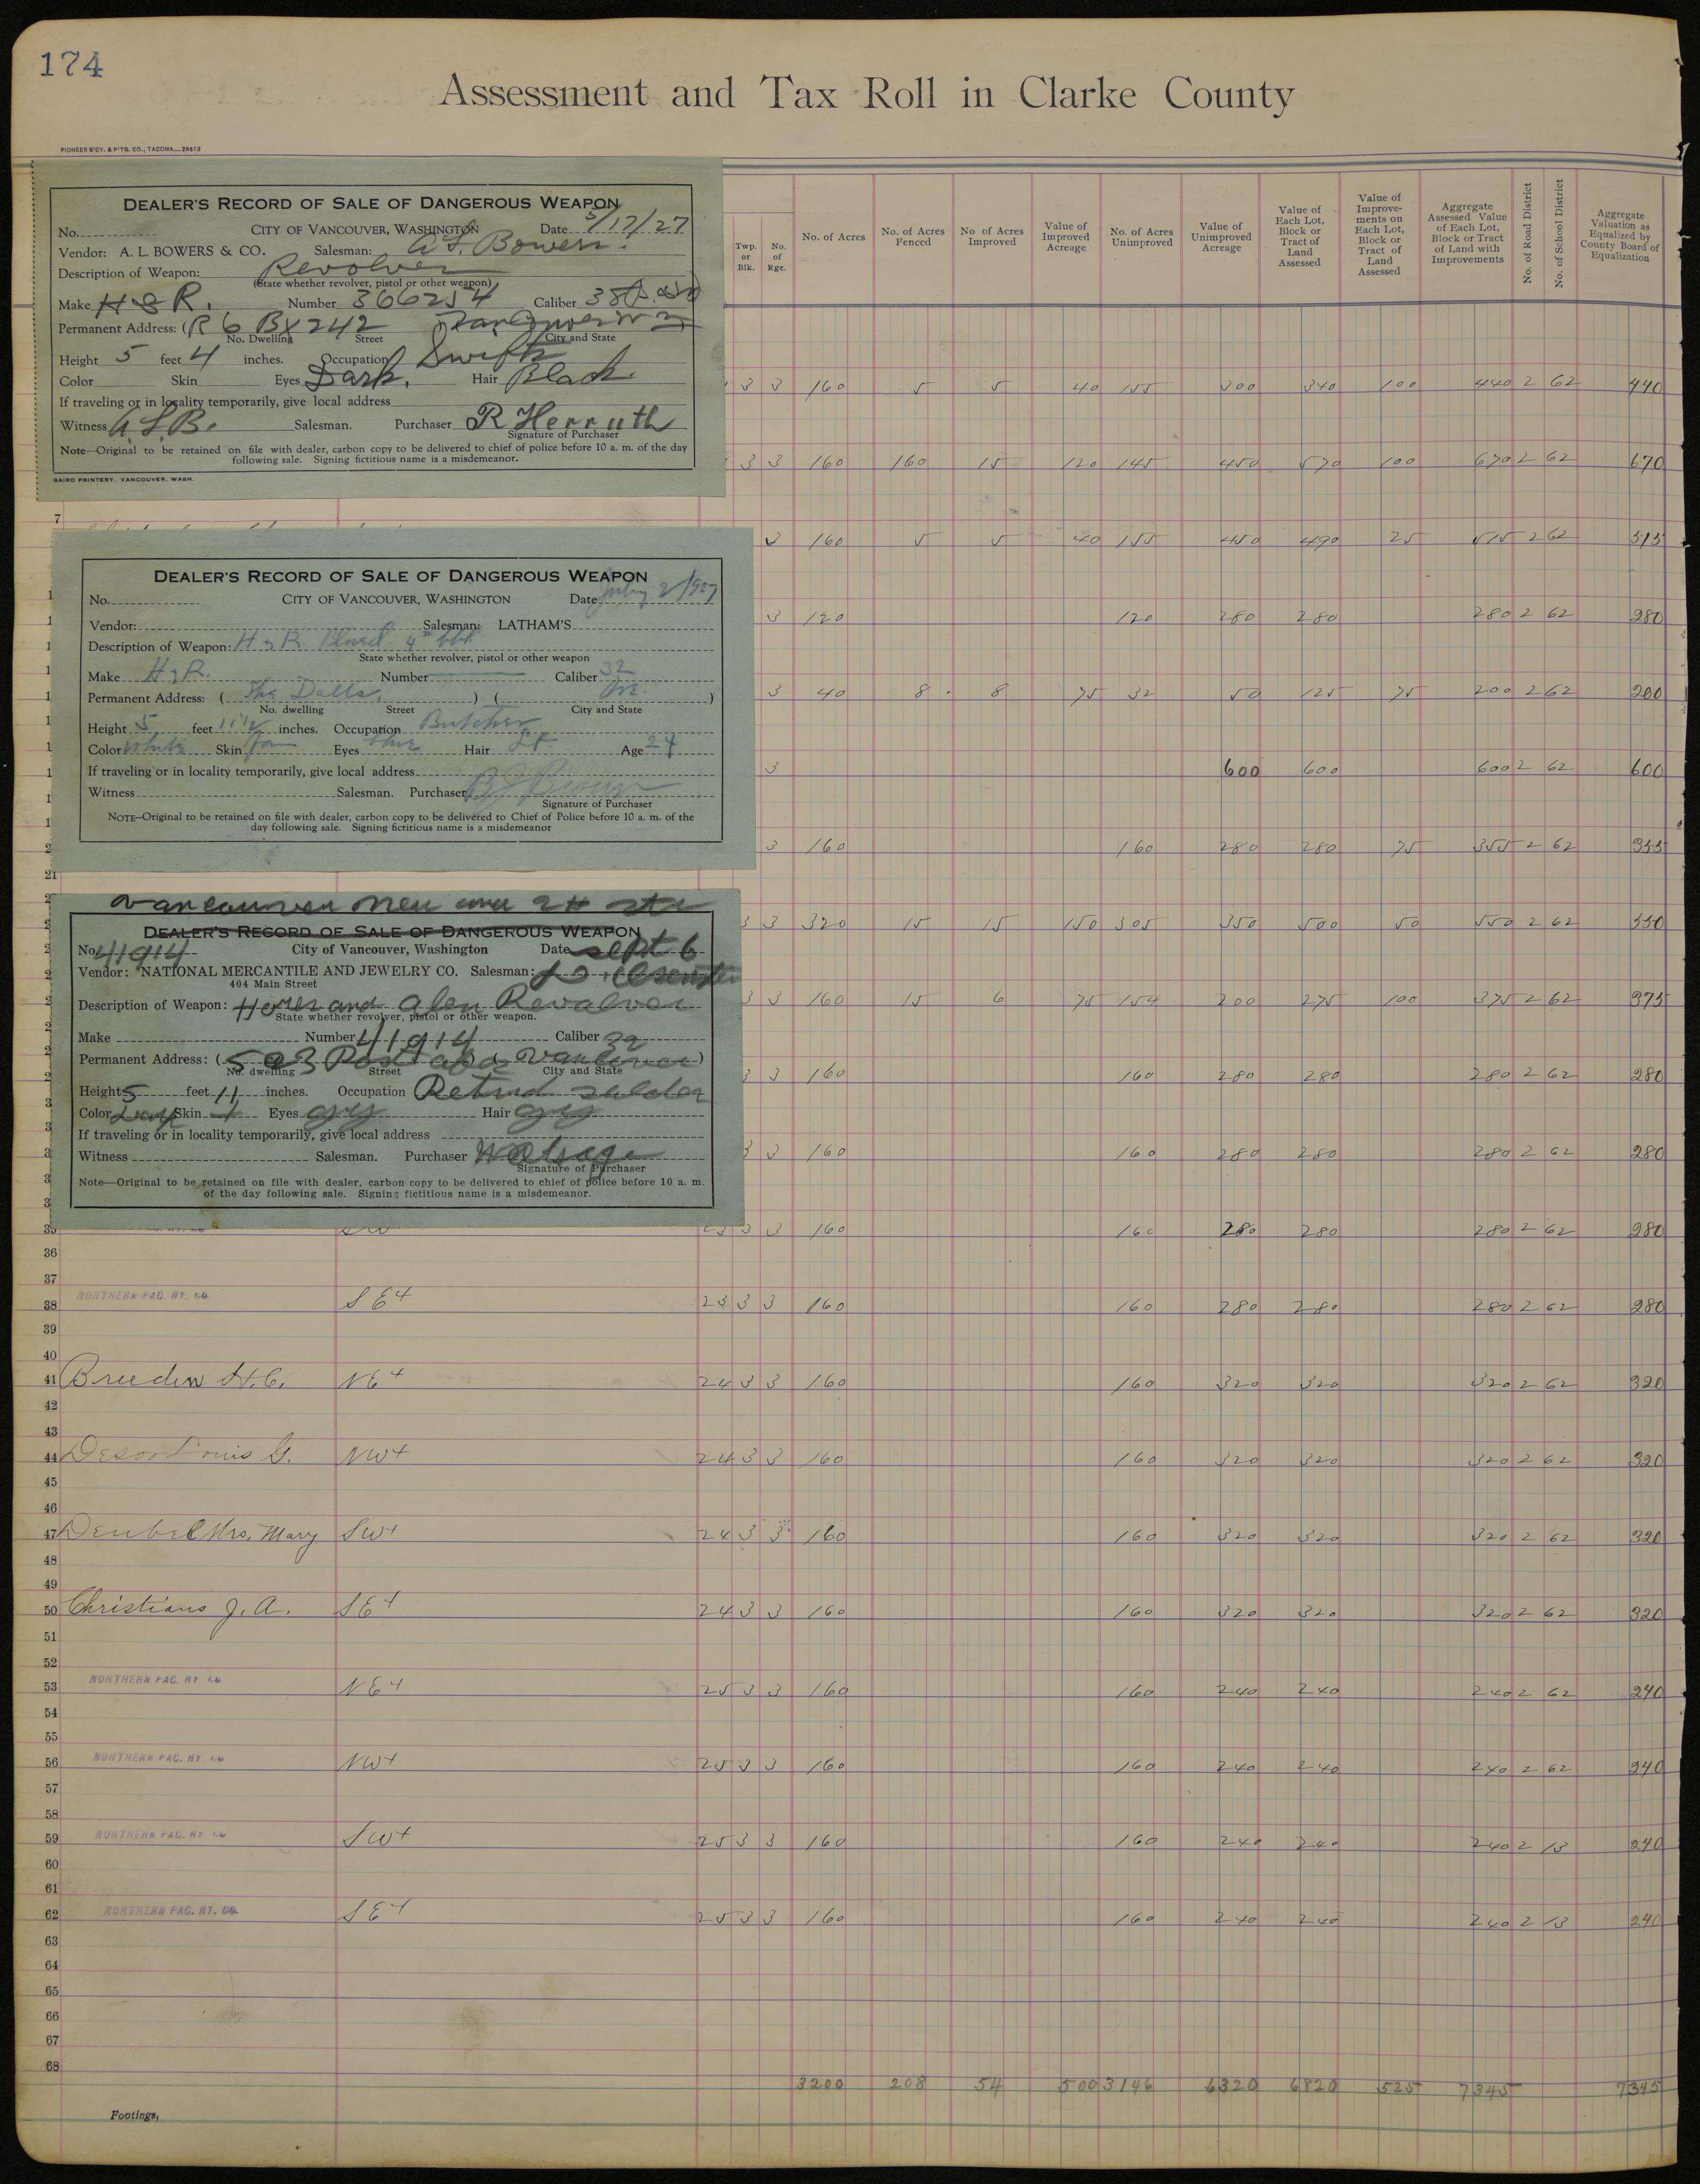 174
Assessment and Tax Roll in Clarke County
PIONEER B'DY. & P'TG. CO., TACOMA—26813
Twp. or Blk. No. of Rge. No. of Acres No. of Acres Fenced No. of Acres Improved Value of Improved Acreage No. of Acres Unimproved Value of Unimproved Acreage Value of Each Lot, Block or Tract of Land Assessed Value of Improvements on Each Lot, Block or Tract of Land Assessed Aggregate Assessed Value of Each Lot, Block or Tract of Land with Improvements No. of Road District No. of School District Aggregate Valuation as Equalized by County Board of Equalization
DEALER'S RECORD OF SALE OF DANGEROUS WEAPON
No. CITY OF VANCOUVER, WASHINGTON Date 5/17/27
Vendor: A. L. BOWERS & CO. Salesman: A. L. Bowers.
Description of Weapon: Revolver
(State whether revolver, pistol or other weapon)
Make H & R. Number 366254 Caliber 38
Permanent Address: (R 6 Bx 242
No. Dwelling Street City and State
Height 5 feet 4 inches. Occupation Swift
Color Skin Eyes Dark. Hair Black
If traveling or in locality temporarily, give local address
Witness A. L. B. Salesman. Purchaser R Herruth
Signature of Purchaser
Note—Original to be retained on file with dealer, carbon copy to be delivered to chief of police before 10 a. m. of the day
following sale. Signing fictitious name is a misdemeanor.
BAIRD PRINTERY, VANCOUVER, WASH.
3 3 160 5 5 40 155 300 340 100 440 2 62 440
3 3 160 160 15 120 145 450 570 100 670 2 62 670
7
3 160 5 5 40 155 450 490 25 515 2 62 515
3 120 120 280 280 280 2 62 280
3 40 8 8 75 32 50 125 75 200 2 62 200
3 600 600 600 2 62 600
3 160 160 280 280 75 355 2 62 355
DEALER'S RECORD OF SALE OF DANGEROUS WEAPON
No. CITY OF VANCOUVER, WASHINGTON Date July 2/1927
Vendor: Salesman: LATHAM'S
Description of Weapon: H & R. Blued 4" bbl
State whether revolver, pistol or other weapon
Make H & R. Number Caliber 32
Permanent Address: ( The Dalls, ) ( Ore. )
No. dwelling Street City and State
Height 5 feet 11 1/2 inches. Occupation Butcher
Color White Skin Eyes Hair Lt. Age 24
If traveling or in locality temporarily, give local address
Witness Salesman. Purchaser Brown
Signature of Purchaser
NOTE--Original to be retained on file with dealer, carbon copy to be delivered to Chief of Police before 10 a. m. of the
day following sale. Signing fictitious name is a misdemeanor
21
3 3 320 15 15 150 305 350 500 50 550 2 62 550
3 3 160 15 6 75 154 200 275 100 375 2 62 375
3 3 160 160 280 280 280 2 62 280
3 3 160 160 280 280 280 2 62 280
Vancouver
DEALER'S RECORD OF SALE OF DANGEROUS WEAPON
No. 41914 City of Vancouver, Washington Date Sept 6
Vendor: NATIONAL MERCANTILE AND JEWELRY CO. Salesman:
404 Main Street
Description of Weapon:
State whether revolver, pistol or other weapon.
Make Number 41914 Caliber 32
Permanent Address: ( 503 Post ) ( )
No. dwelling Street City and State
Height 5 feet 11 inches. Occupation Retired
Color Skin Eyes gry Hair gry
If traveling or in locality temporarily, give local address
Witness Salesman. Purchaser
Signature of Purchaser
Note—Original to be retained on file with dealer, carbon copy to be delivered to chief of police before 10 a. m.
of the day following sale. Signing fictitious name is a misdemeanor.
35 SW 23 3 3 160 160 280 280 280 2 62 280
36
37
38 NORTHERN PAC. RY. CO. SE4 23 3 3 160 160 280 280 280 2 62 280
39
40
41 Breeden H. C. NE4 24 3 3 160 160 320 320 320 2 62 320
42
43
44 Louis G. NW4 24 3 3 160 160 320 320 320 2 62 320
45
46
47 Deubel Mrs. Mary SW4 24 3 3 160 160 320 320 320 2 62 320
48
49
50 Christians J. A. SE4 24 3 3 160 160 320 320 320 2 62 320
51
52
53 NORTHERN PAC. RY. CO. NE4 25 3 3 160 160 240 240 240 2 62 240
54
55
56 NORTHERN PAC. RY. CO. NW4 25 3 3 160 160 240 240 240 2 62 240
57
58
59 NORTHERN PAC. RY. CO. SW4 25 3 3 160 160 240 240 240 2 13 240
60
61
62 NORTHERN PAC. RY. CO. SE4 25 3 3 160 160 240 240 240 2 13 240
63
64
65
66
67
68
3200 208 54 500 3146 6320 6820 525 7345 7345
Footings,